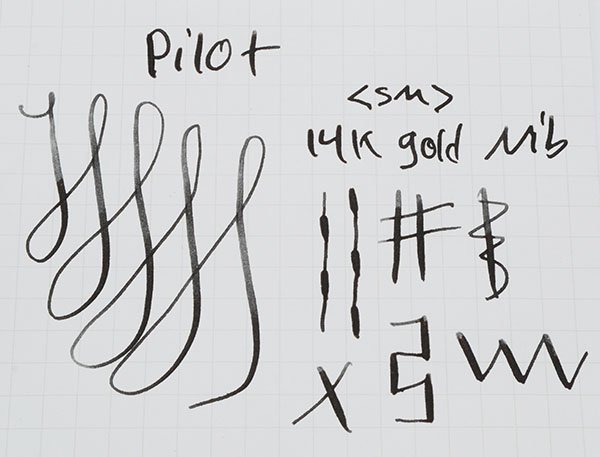 Pilot
<SM>
14K gold Nib